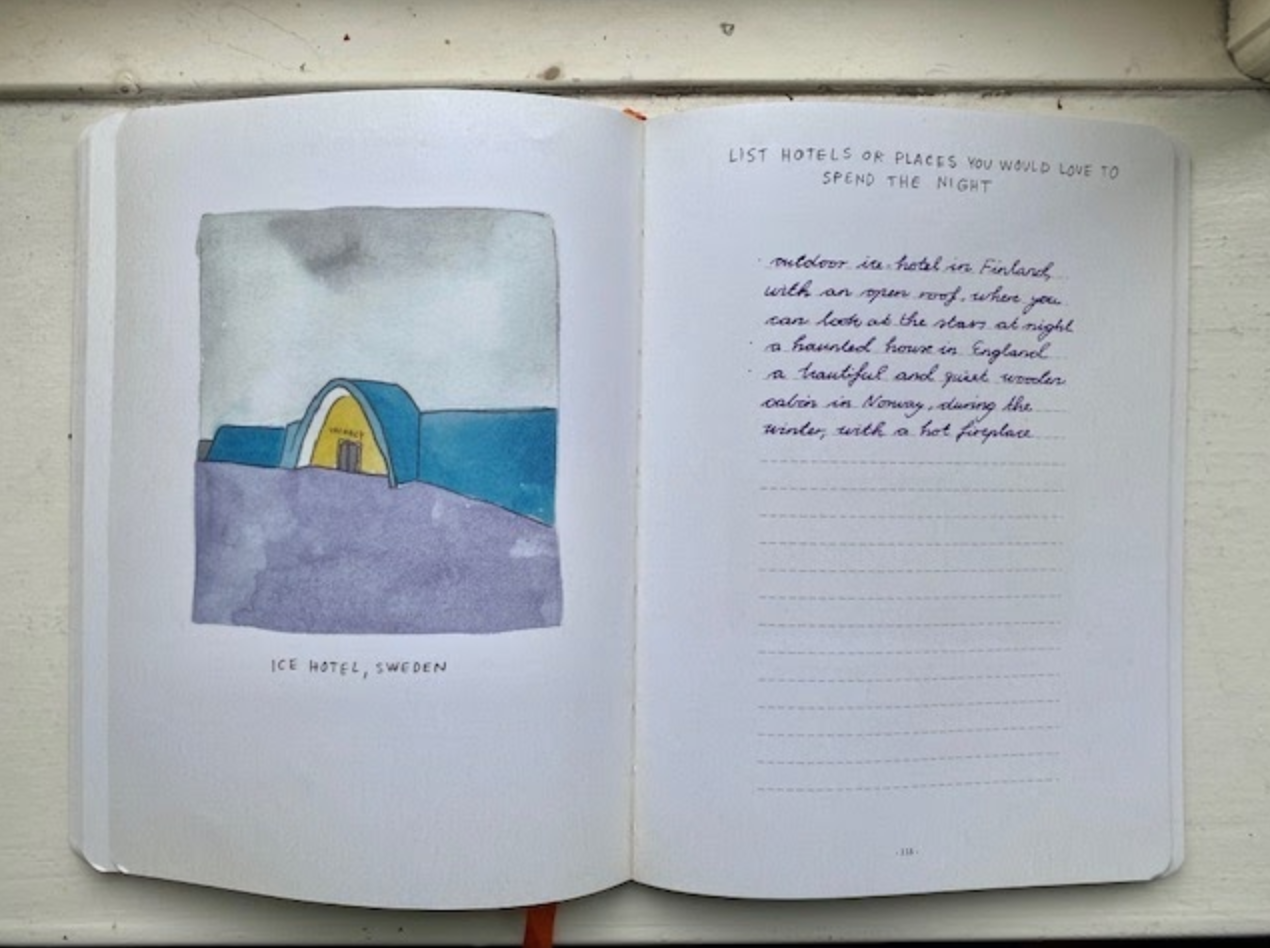 VACANCY
ICE HOTEL, SWEDEN
LIST HOTELS OR PLACES YOU WOULD LOVE TO
SPEND THE NIGHT
· outdoor ice-hotel in Finland,
with an open roof, where you
can look at the stars at night
· a haunted house in England
· a beautiful and quiet wooden
cabin in Norway, during the
winter, with a hot fireplace